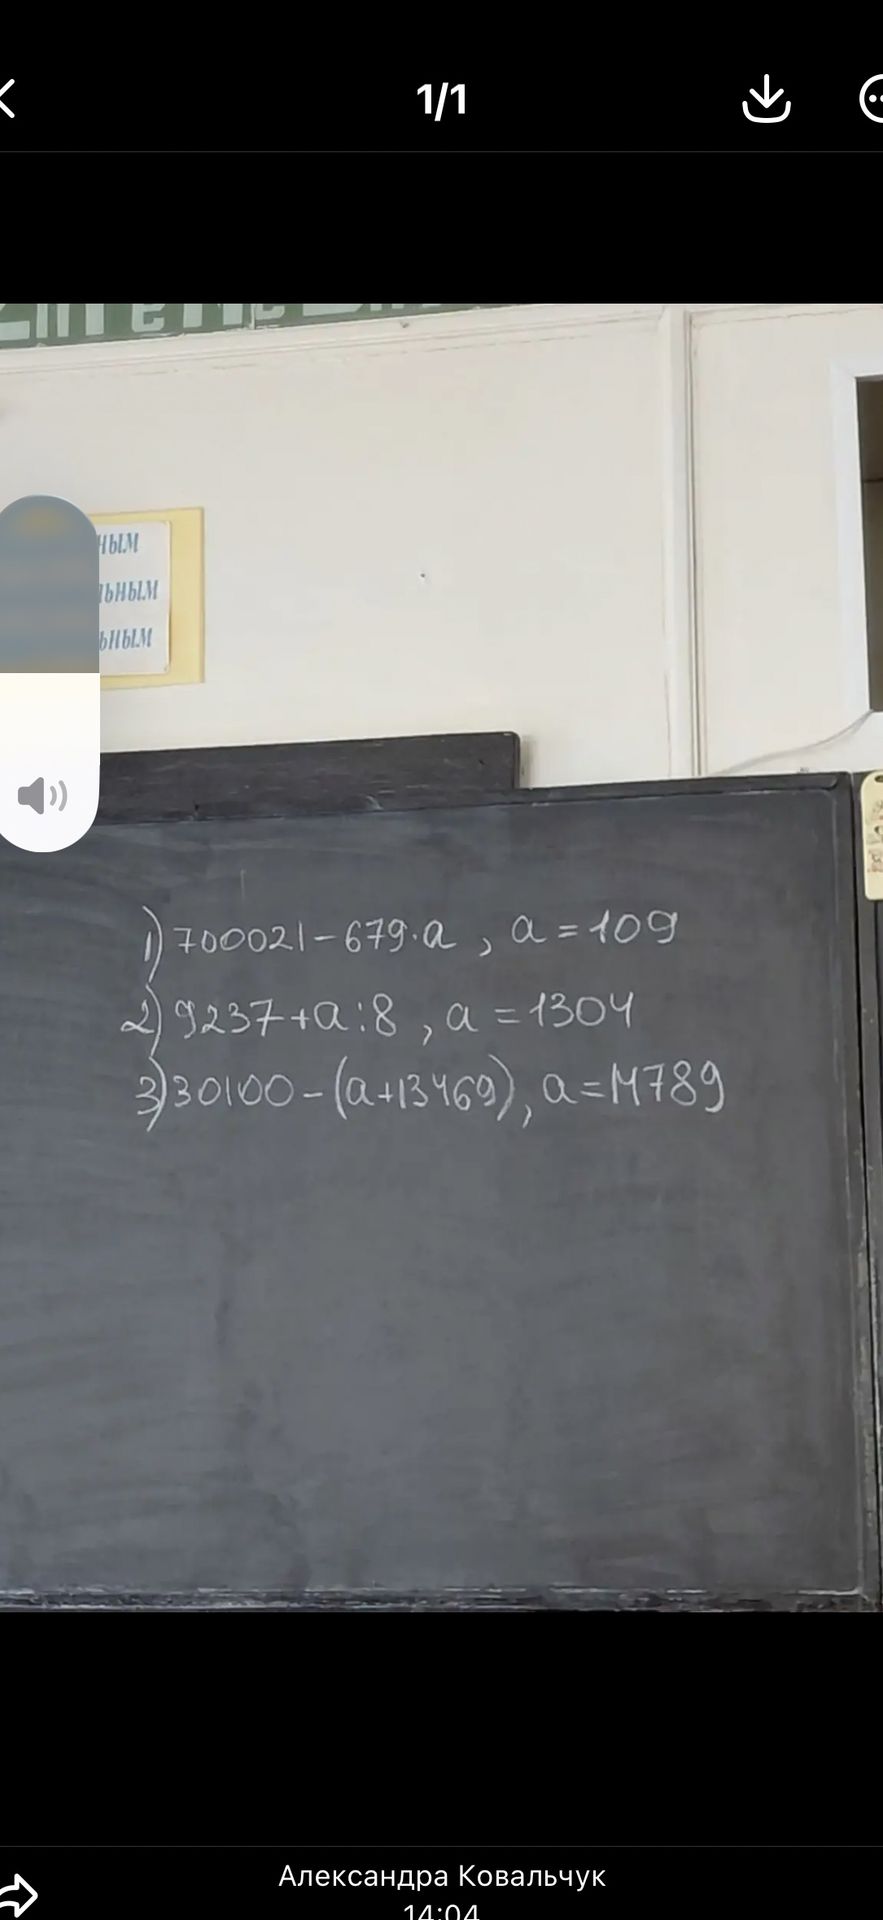 1/1
ным
льным
ьным
1) 700021-679·a, a=109
2) 9237+a:8, a=1304
3) 30100-(a+13469), a=14789
Александра Ковальчук
14:04